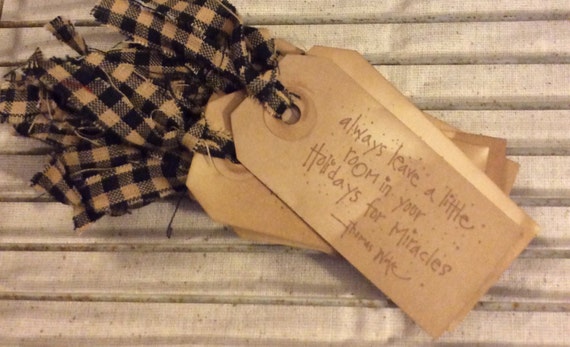 always leave a little
room in your
Holidays for Miracles
—Thomas